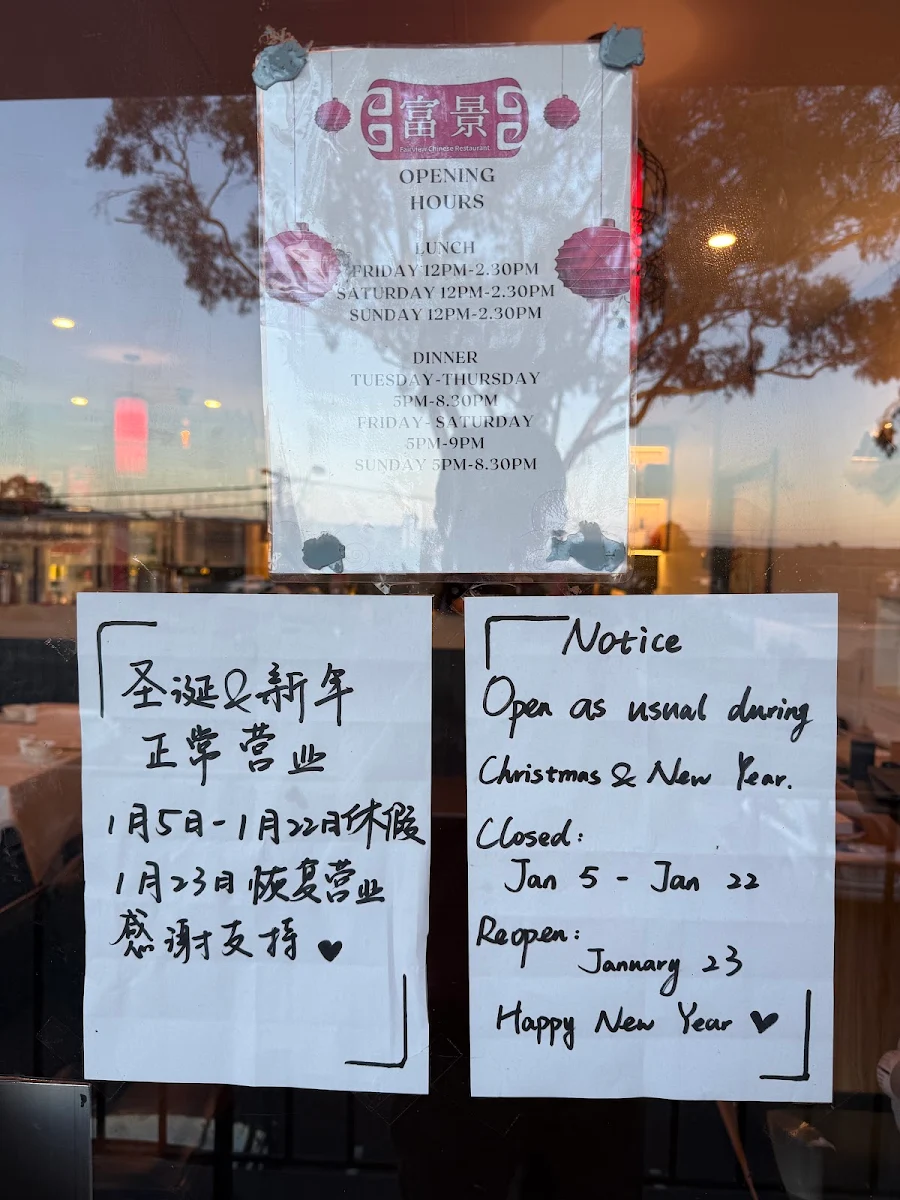 富景
Fairview Chinese Restaurant
OPENING
HOURS
LUNCH
FRIDAY 12PM-2.30PM
SATURDAY 12PM-2.30PM
SUNDAY 12PM-2.30PM
DINNER
TUESDAY-THURSDAY
5PM-8.30PM
FRIDAY- SATURDAY
5PM-9PM
SUNDAY 5PM-8.30PM
圣诞&新年
正常营业
1月5日-1月22日休假
1月23日恢复营业
感谢支持 ♥
Notice
Open as usual during
Christmas & New Year.
Closed:
Jan 5 - Jan 22
Reopen:
Jannary 23
Happy New Year ♥